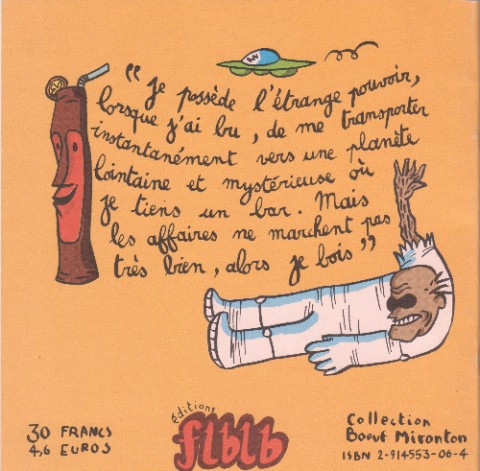 “Je possède l'étrange pouvoir,
lorsque j'ai bu, de me transporter
instantanément vers une planète
lointaine et mystérieuse où
je tiens un bar. Mais
les affaires ne marchent pas
très bien, alors je bois”
30 FRANCS
4,6 EUROS
éditions
flblb
Collection
Boeuf Mironton
ISBN 2-914553-06-4